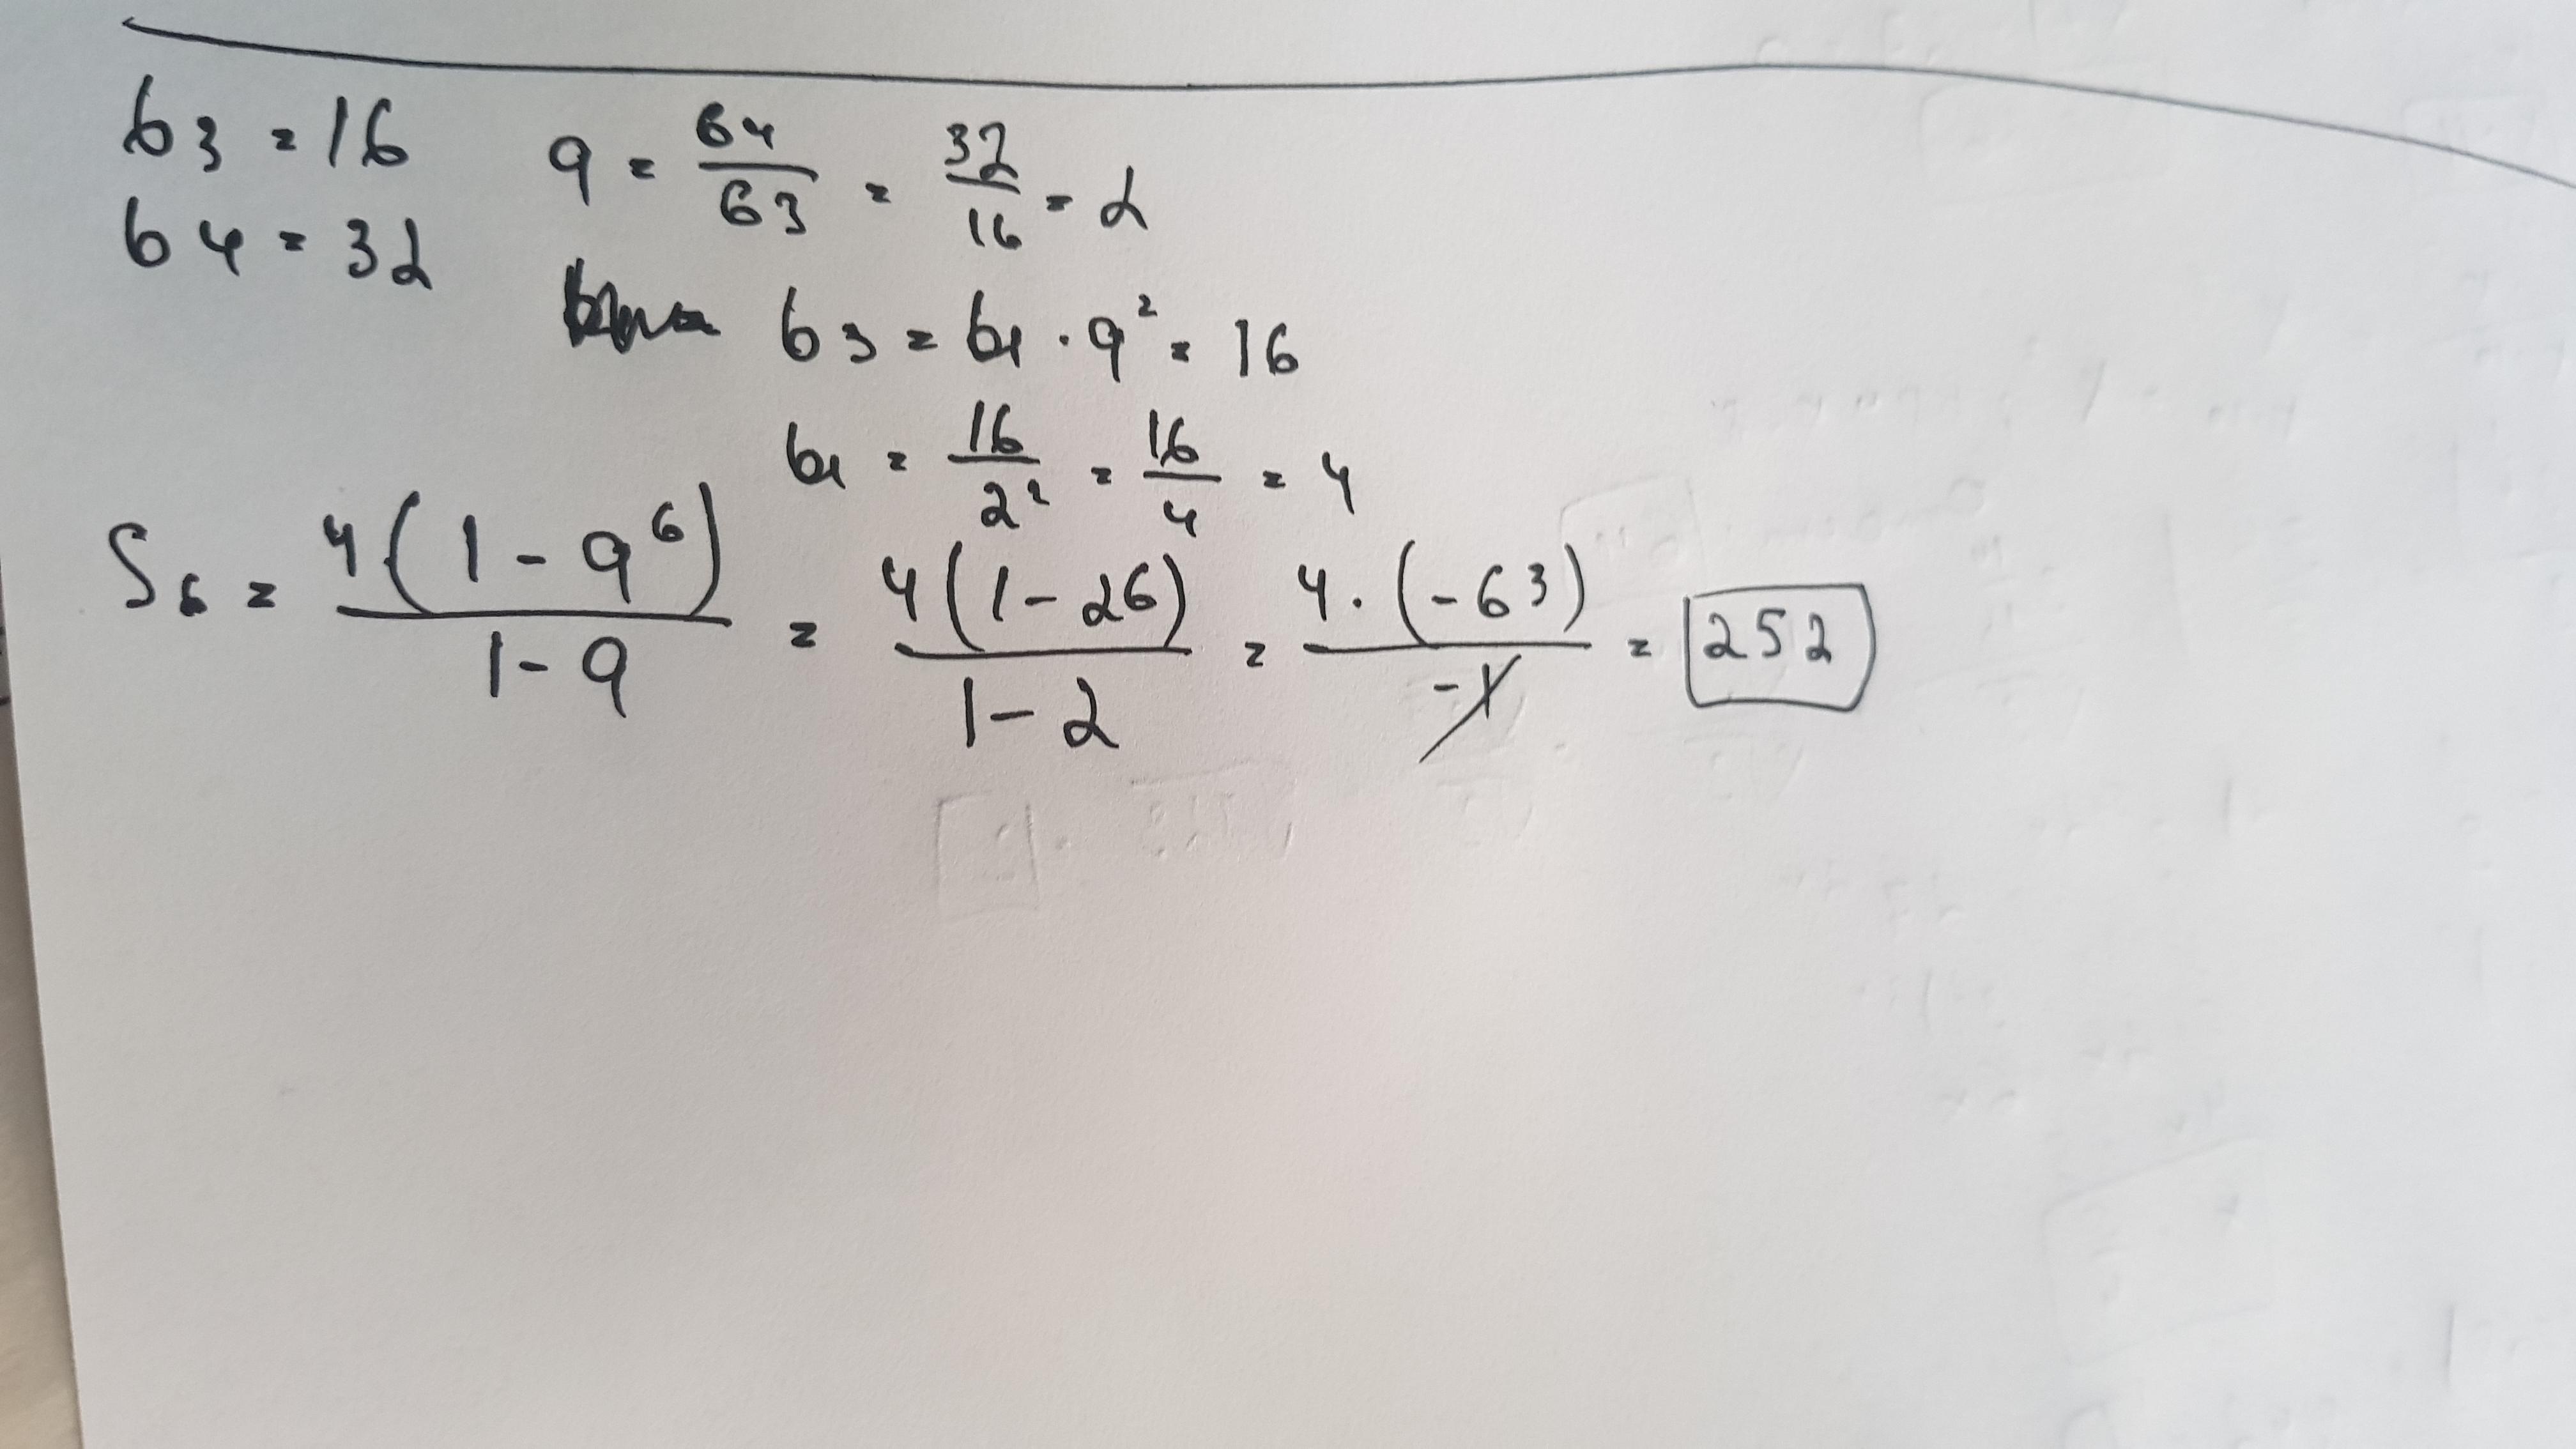 b3 = 16
b4 = 32
q = b4/b3 = 32/16 = 2
b3 = b1 · q² = 16
b1 = 16/2² = 16/4 = 4
S6 = 4(1 - q⁶)/1 - q = 4(1 - 26)/1 - 2 = 4 · (-63)/-1 = 252